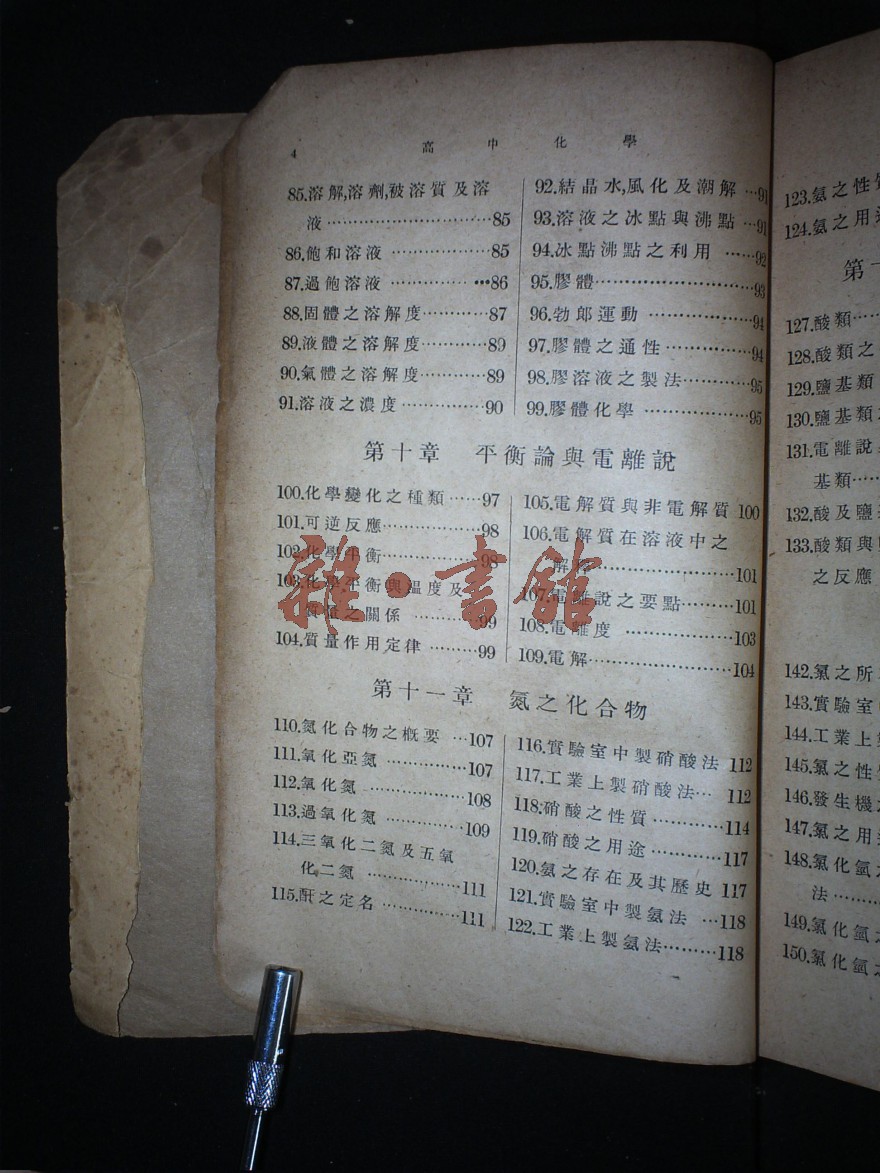 4 高中化學
85.溶解,溶劑,被溶質及溶
液……………………85
86.飽和溶液 ……………85
87.過飽溶液 ……………86
88.固體之溶解度…………87
89.液體之溶解度…………89
90.氣體之溶解度…………89
91.溶液之濃度……………90
92.結晶水,風化及潮解 …91
93.溶液之冰點與沸點 …91
94.冰點沸點之利用 ……92
95.膠體……………………93
96.勃郎運動 ……………94
97.膠體之通性……………94
98.膠溶液之製法…………95
99.膠體化學 ……………95
第十章 平衡論與電離說
100.化學變化之種類……97
101.可逆反應……………98
102.化學平衡……………98
103.化學平衡與温度及
質量之關係 …………99
104.質量作用定律 ………99
105.電解質與非電解質 100
106.電解質在溶液中之
解離…………………101
107.電離說之要點………101
108.電離度 ……………103
109.電解…………………104
第十一章 氮之化合物
110.氮化合物之概要 …107
111.氧化亞氮 …………107
112.氧化氮 ……………108
113.過氧化氮 …………109
114.三氧化二氮及五氧
化二氮 ………………111
115.酐之定名 …………111
116.實驗室中製硝酸法 112
117.工業上製硝酸法… 112
118.硝酸之性質…………114
119.硝酸之用途…………117
120.氨之存在及其歷史 117
121.實驗室中製氨法 …118
122.工業上製氨法………118
123.氨之性質
124.氨之用途
第十
127.酸類……
128.酸類之
129.鹽基類
130.鹽基類
131.電離說
基類……
132.酸及鹽
133.酸類與
之反應
142.氯之所
143.實驗室
144.工業上
145.氯之性
146.發生機
147.氯之用
148.氯化氫
法……
149.氯化氫
150.氯化氫之
雜·書館